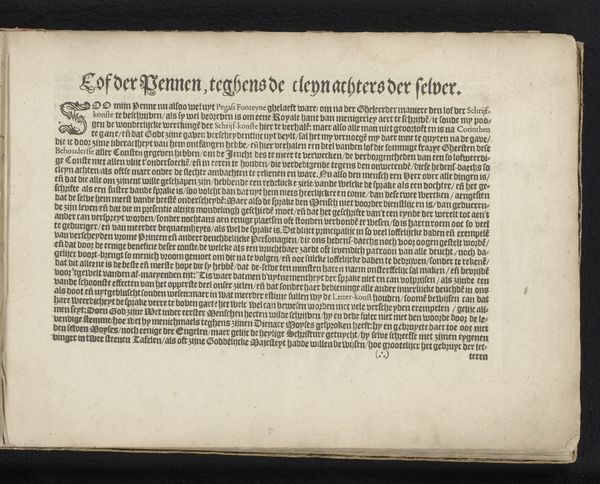 Lof der Pennen, teghens de cleynachters der selver.
SOO mijn Penne nu alsoo wel uyt Pegasi Fonteyne ghelaeft ware/ om na der Gheleerder maniere den lof der Schrijf-
konste te beschrijven/ als sy wel bedreven is om eene Royale hant van menigerley aert te schrijvē/ ic soude my poo-
gen de wonderlijcke werckinge der Schrijf-konste hier te verhalē: maer also alle man niet gheoorloft en is na Corinthen
te gane/ eñ dat Godt zijne gaven verscheydentlic uyt deylt/ sal het my vernoegē my daer inne te quyten na de gave/
die ic door zijne liberaelheyt van hem ontfangen hebbe/ eñ hier verhalen een deel vanden lof die sommige fraeye Gheesten dese
Behouderſſe aller Consten gegeven hebben/ om de Jeucht des te meer te verwecken/ de verborgentheden van een so lofweerdi-
ge Const met allen vlijt t'ondersoeckē/ eñ in eeren te houden/ die verdedigende tegens den onwetende/ diese hedens-daechs so
cleyn achten/ als ofse maer onder de slechte ambachten te rekenen en ware. Nu also den mensch een Heer over alle dingen is/
eñ dat die alle om zijnent wille geschapen zijn/ hebbende een redelicke ziele/ vande welcke de sprake als een dochter/ eñ het ge-
schrifte als een suster vande sprake is/ soo volcht dan dat uyt hem niets heerlickers en come/ dan dese twee wercken/ aengesien
dat de selve hem meest vande beestē onderscheydē: Maer also de sprake den Mensch niet voorder dienstlijc en is/ dan geduren-
de zijn leven/ eñ dat die in presentie altijts mondelingh geschiedt moet/ eñ dat het geschrifte van't een eynde der werelt tot aen's
ander can verspreyt worden/ sonder nochtans aen eenige plaetsen oft stonden verbondē te wesen/ so is haren roem ooc so veel
te geduriger/ eñ van meerder bequaemheyts/ als wel de sprake is. Dit blijct principalijc in so veel loffelijcke daden eñ exempelē
van verscheyden vrome Princen eñ ander deuchdelijcke Personagien/ die ons hedens-daechs noch voor oogen gestelt wordē/
eñ dat door de eenige beneficie deser conste/ de welcke als een vruchtbaer zaedt oft levendich patroon van alle deucht/ noch da-
gelijcx voort-brengt so menich vroom gemoet om die na te volgen/ eñ ooc sulcke loffelijcke daden te bedrijven/ sonder te rekenē/
dat dit alleene is de beste eñ meeste hope die sy hebbē/ dat de selve ten minsten haren naem onsterffelijc sal maken/ eñ bevrijdē
voor 'tgewelt vanden al-maeyenden tijt: Tis waer dat men d'uytnementheyt der sprake niet en can volprijsen/ als zijnde een
vande schoonste effecten van het opperste deel onser zielen/ eñ dat sonder haer bedieninge alle ander innerlicke deucht in ons
als doot eñ uytgebluscht souden wesen: maer in wat meerdere estime sullen wy de Letter-konst houden/ soomē bewijsen can dat
hare weerdicheyt de sprake verre te boven gaet: het welc wel can bewesen worden met vele verscheyden exempelen/ gelijc als-
men seyt: Doen God zijne Wet inder eerster Menschen herten wilde schrijven/ hy en dede sulcx niet met den woorde door de le-
vendige stemme: hoe wel hy menichmaels teghens zijnen Dienaer Moyses gesproken heeft: hy en gebruycte daer toe oot niet
den selven Moyses/ noch eenige der Engelen/ maer gelijc de heylige Schrifture getuycht/ hy selve schreefse met zijnen eygenen
vinger in twee steenen Tafelen/ als oft zijne Goddelijcke Majesteyt hadde willen bewijsen/ hoe grootelijcx het gebruyc der let-
(∴) teren